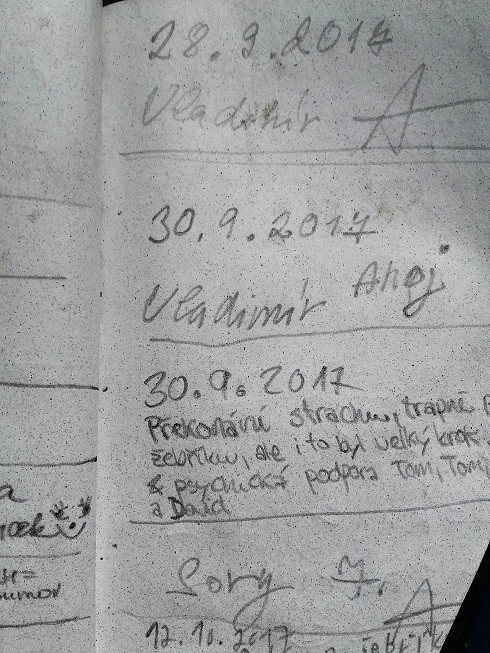 28.9.2017
Vladimír A
30.9.2017
Vladimír Ahoj
30.9.2017
Překonání strachu, trapné
žebříku, ale i to byl velký krok
& psychická podpora Tom, Tom,
a David
Sory J.
12.10.2017